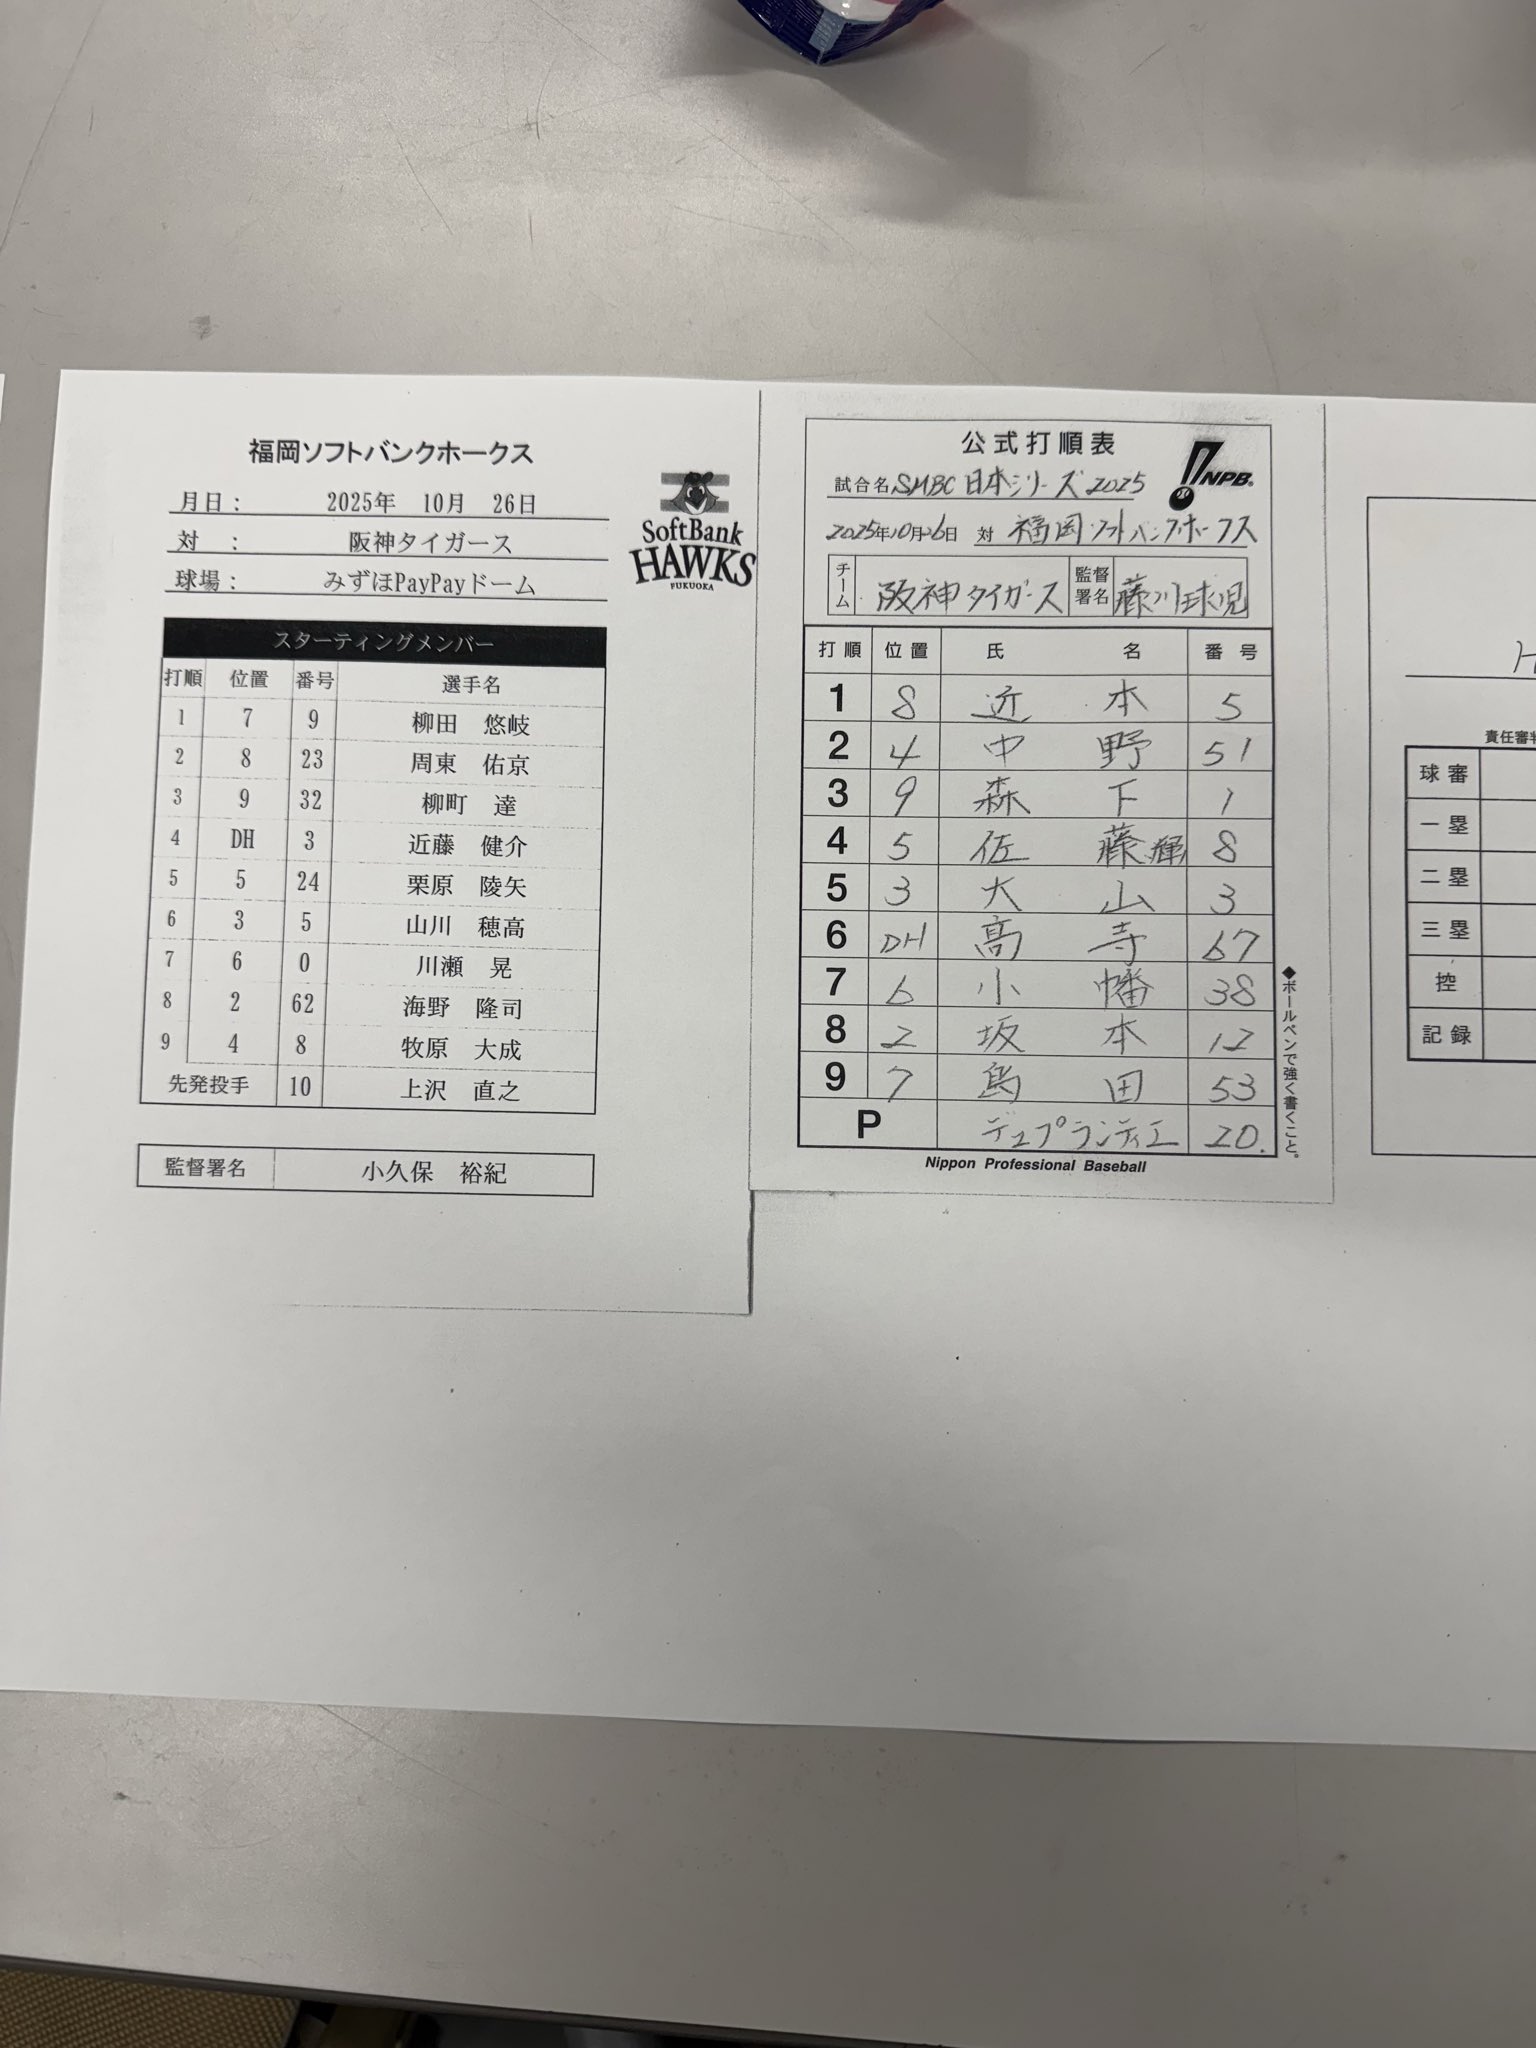 福岡ソフトバンクホークス
月日： 2025年 10月 26日
対 ： 阪神タイガース
球場： みずほPayPayドーム
SoftBank
HAWKS
FUKUOKA
スターティングメンバー
打順 位置 番号 選手名
1 7 9 柳田 悠岐
2 8 23 周東 佑京
3 9 32 柳町 達
4 DH 3 近藤 健介
5 5 24 栗原 陵矢
6 3 5 山川 穂高
7 6 0 川瀬 晃
8 2 62 海野 隆司
9 4 8 牧原 大成
先発投手 10 上沢 直之
監督署名 小久保 裕紀
公式打順表
NPB
試合名 SMBC 日本シリーズ 2025
2025年10月26日 対 福岡ソフトバンクホークス
チーム 阪神タイガース 監督署名 藤川球児
打順 位置 氏名 番号
1 8 近本 5
2 4 中野 51
3 9 森下 1
4 5 佐藤輝 8
5 3 大山 3
6 DH 高寺 67
7 6 小幡 38
8 2 坂本 12
9 7 島田 53
P デュプランティエ 20.
Nippon Professional Baseball
◆ボールペンで強く書くこと。
H
責任審判
球審
一塁
二塁
三塁
控
記録